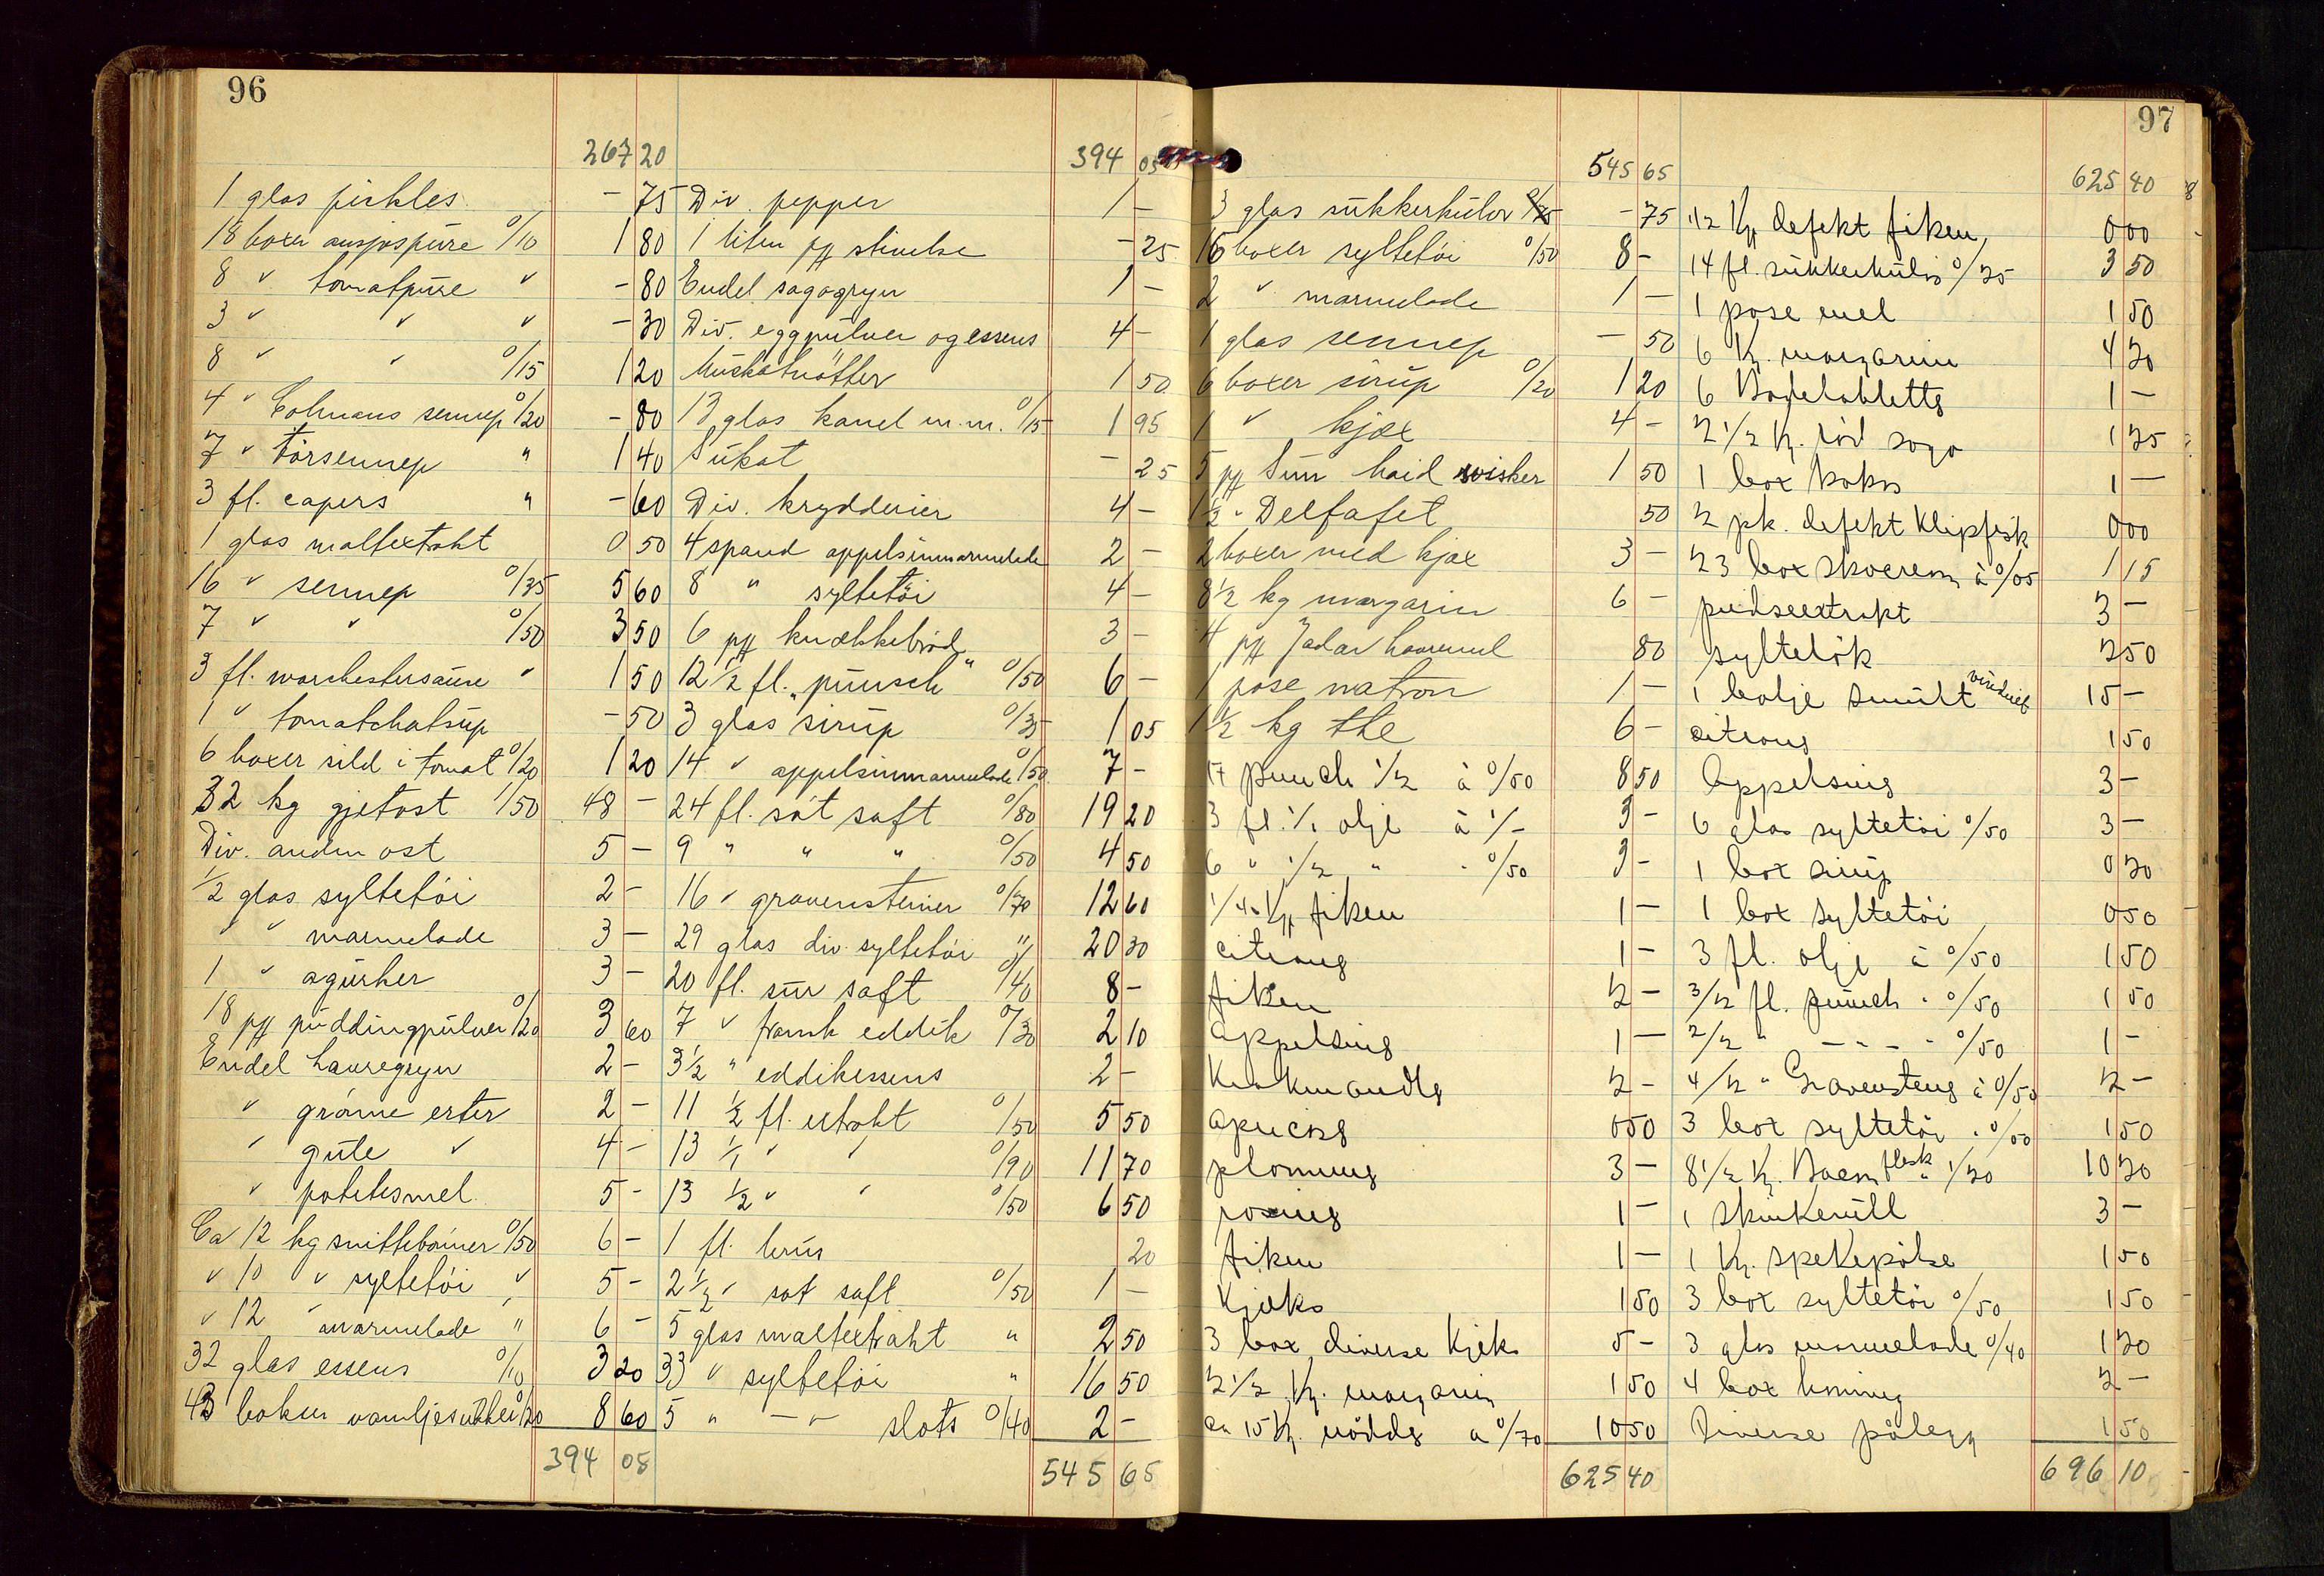 96
267 20
1 glas pirkles - 75
18 boxer ansjospüre 0/10 1 80
8 " tomatpüre " - 80
3 " " " - 30
8 " " 0/15 1 20
4 " Colmans sennep 0/20 - 80
7 " Törsennep " 1 40
3 fl. capers " - 60
1 glas maltextrakt 0 50
16 " sennep 0/35 5 60
7 " " 0/50 3 50
3 fl. worchestersause " 1 50
1 " tomatchatsüp - 50
6 boxer sild i tomat 0/20 1 20
32 kg gjetost 1/50 48 -
Div. anden ost 5 -
1/2 glas syltetöi 2 -
" " marmelade 3 -
1 " agurker 3 -
18 pk püddingpülver 0/20 3 60
Endel havregryn 2 -
" grönne erter 2 -
" güle " 4 -
" potetesmel 5 -
Ca 12 kg snittebönner 0/50 6 -
" 10 " syltetöi " 5 -
" 12 " marmelade " 6 -
32 glas essens 0/10 3 20
43 bokser vaniljesukker 0/20 8 60
394 05
394 05
Div. pepper 1 -
1 liten pk stivelse - 25
Endel sagogryn 1 -
Div. eggpülver og essens 4 -
Müskatnötter 1 50
13 glas kanel m.m. 0/15 1 95
Sükat - 25
Div. krydderier 4 -
4 spand appelsinmarmelade 2 -
8 " syltetöi 4 -
6 pk knækkebröd 3 -
12 1/2 fl. pünsch " 0/50 6 -
3 glas sirüp 0/35 1 05
14 " appelsinmarmelade 0/50 7 -
24 fl. söt saft 0/80 19 20
9 " " " 0/50 4 50
16 " gravensteiner 0/70 12 60
29 glas div. syltetöi " 20 30
20 fl. sür saft 0/40 8 -
7 " fransk eddik 0/30 2 10
3 1/2 " eddikessens 2 -
11 1/2 fl. extrakt 0/50 5 50
13 1/1 " " 0/90 11 70
13 1/2 " " 0/50 6 50
1 fl. brüs 20
2 1/2 " söt saft 0/50 1 -
5 glas maltextrakt " 2 50
33 " syltetöi " 16 50
5 " - " slots 0/40 2 -
545 65
97
545 65
3 glas sükkerkülör 0/25 - 75
16 boxer syltetöi 0/50 8 -
2 " marmelade 1 -
1 glas sennep - 50
6 boxer sirüp 0/20 1 20
1 " kjæx 4 -
5 pk Sün maid wisker 1 50
1 1/2 " Delfafet 50
2 boxer med kjæx 3 -
8 1/2 kg margarin 6 -
4 pk Jadar havremel 80
1 pose natron 1 -
1 1/2 kg the 6 -
17 punch 1/2 à 0/50 8 50
3 fl. 1/1 olje à 1/- 3 -
6 " 1/2 " " 0/50 3 -
1/4 Kg fiken 1 -
citrons 1 -
fiken 2 -
Appelsins 1 -
Krakmandls 2 -
apricos 0 50
plommer 3 -
rosins 1 -
fiken 1 -
Kjeks 1 50
3 box diverse kjeks 5 -
2 1/2 Kg. margarin 1 50
ca 15 Kg. nödds a 0/70 10 50
625 40
625 40
1/2 Kg defekt fiken 0 00
14 fl. sükkerkülör 0/25 3 50
1 pose mel 1 50
6 Kg. margarin 4 20
6 Badetabletts 1 -
2 1/2 Kg. röd sago 1 25
1 box kokos 1 -
2 pk. defekt Klipfisk 0 00
23 box skocrem à 0/05 1 15
pudseextrakt 3 -
syltelök 2 50
1 balje smült 15 -
citrons 1 50
Appelsins 3 -
6 glas syltetöi 0/50 3 -
1 box sirüp 0 20
1 box syltetöi 0 50
3 fl. olje à 0/50 1 50
3/2 fl. punch " 0/50 1 50
2/2 " - - - " 0/50 1 -
4/2 " Gravenstens à 0/50 2 -
3 box syltetöi " 0/50 1 50
8 1/2 Kg. Bacon flesk à 1/20 10 20
1 skinkerüll 3 -
1 Kg. spekepölse 1 50
3 box syltetöi 0/50 1 50
3 glas marmelade 0/40 1 20
4 box honning 2 -
Diverse pålegg 1 50
696 10